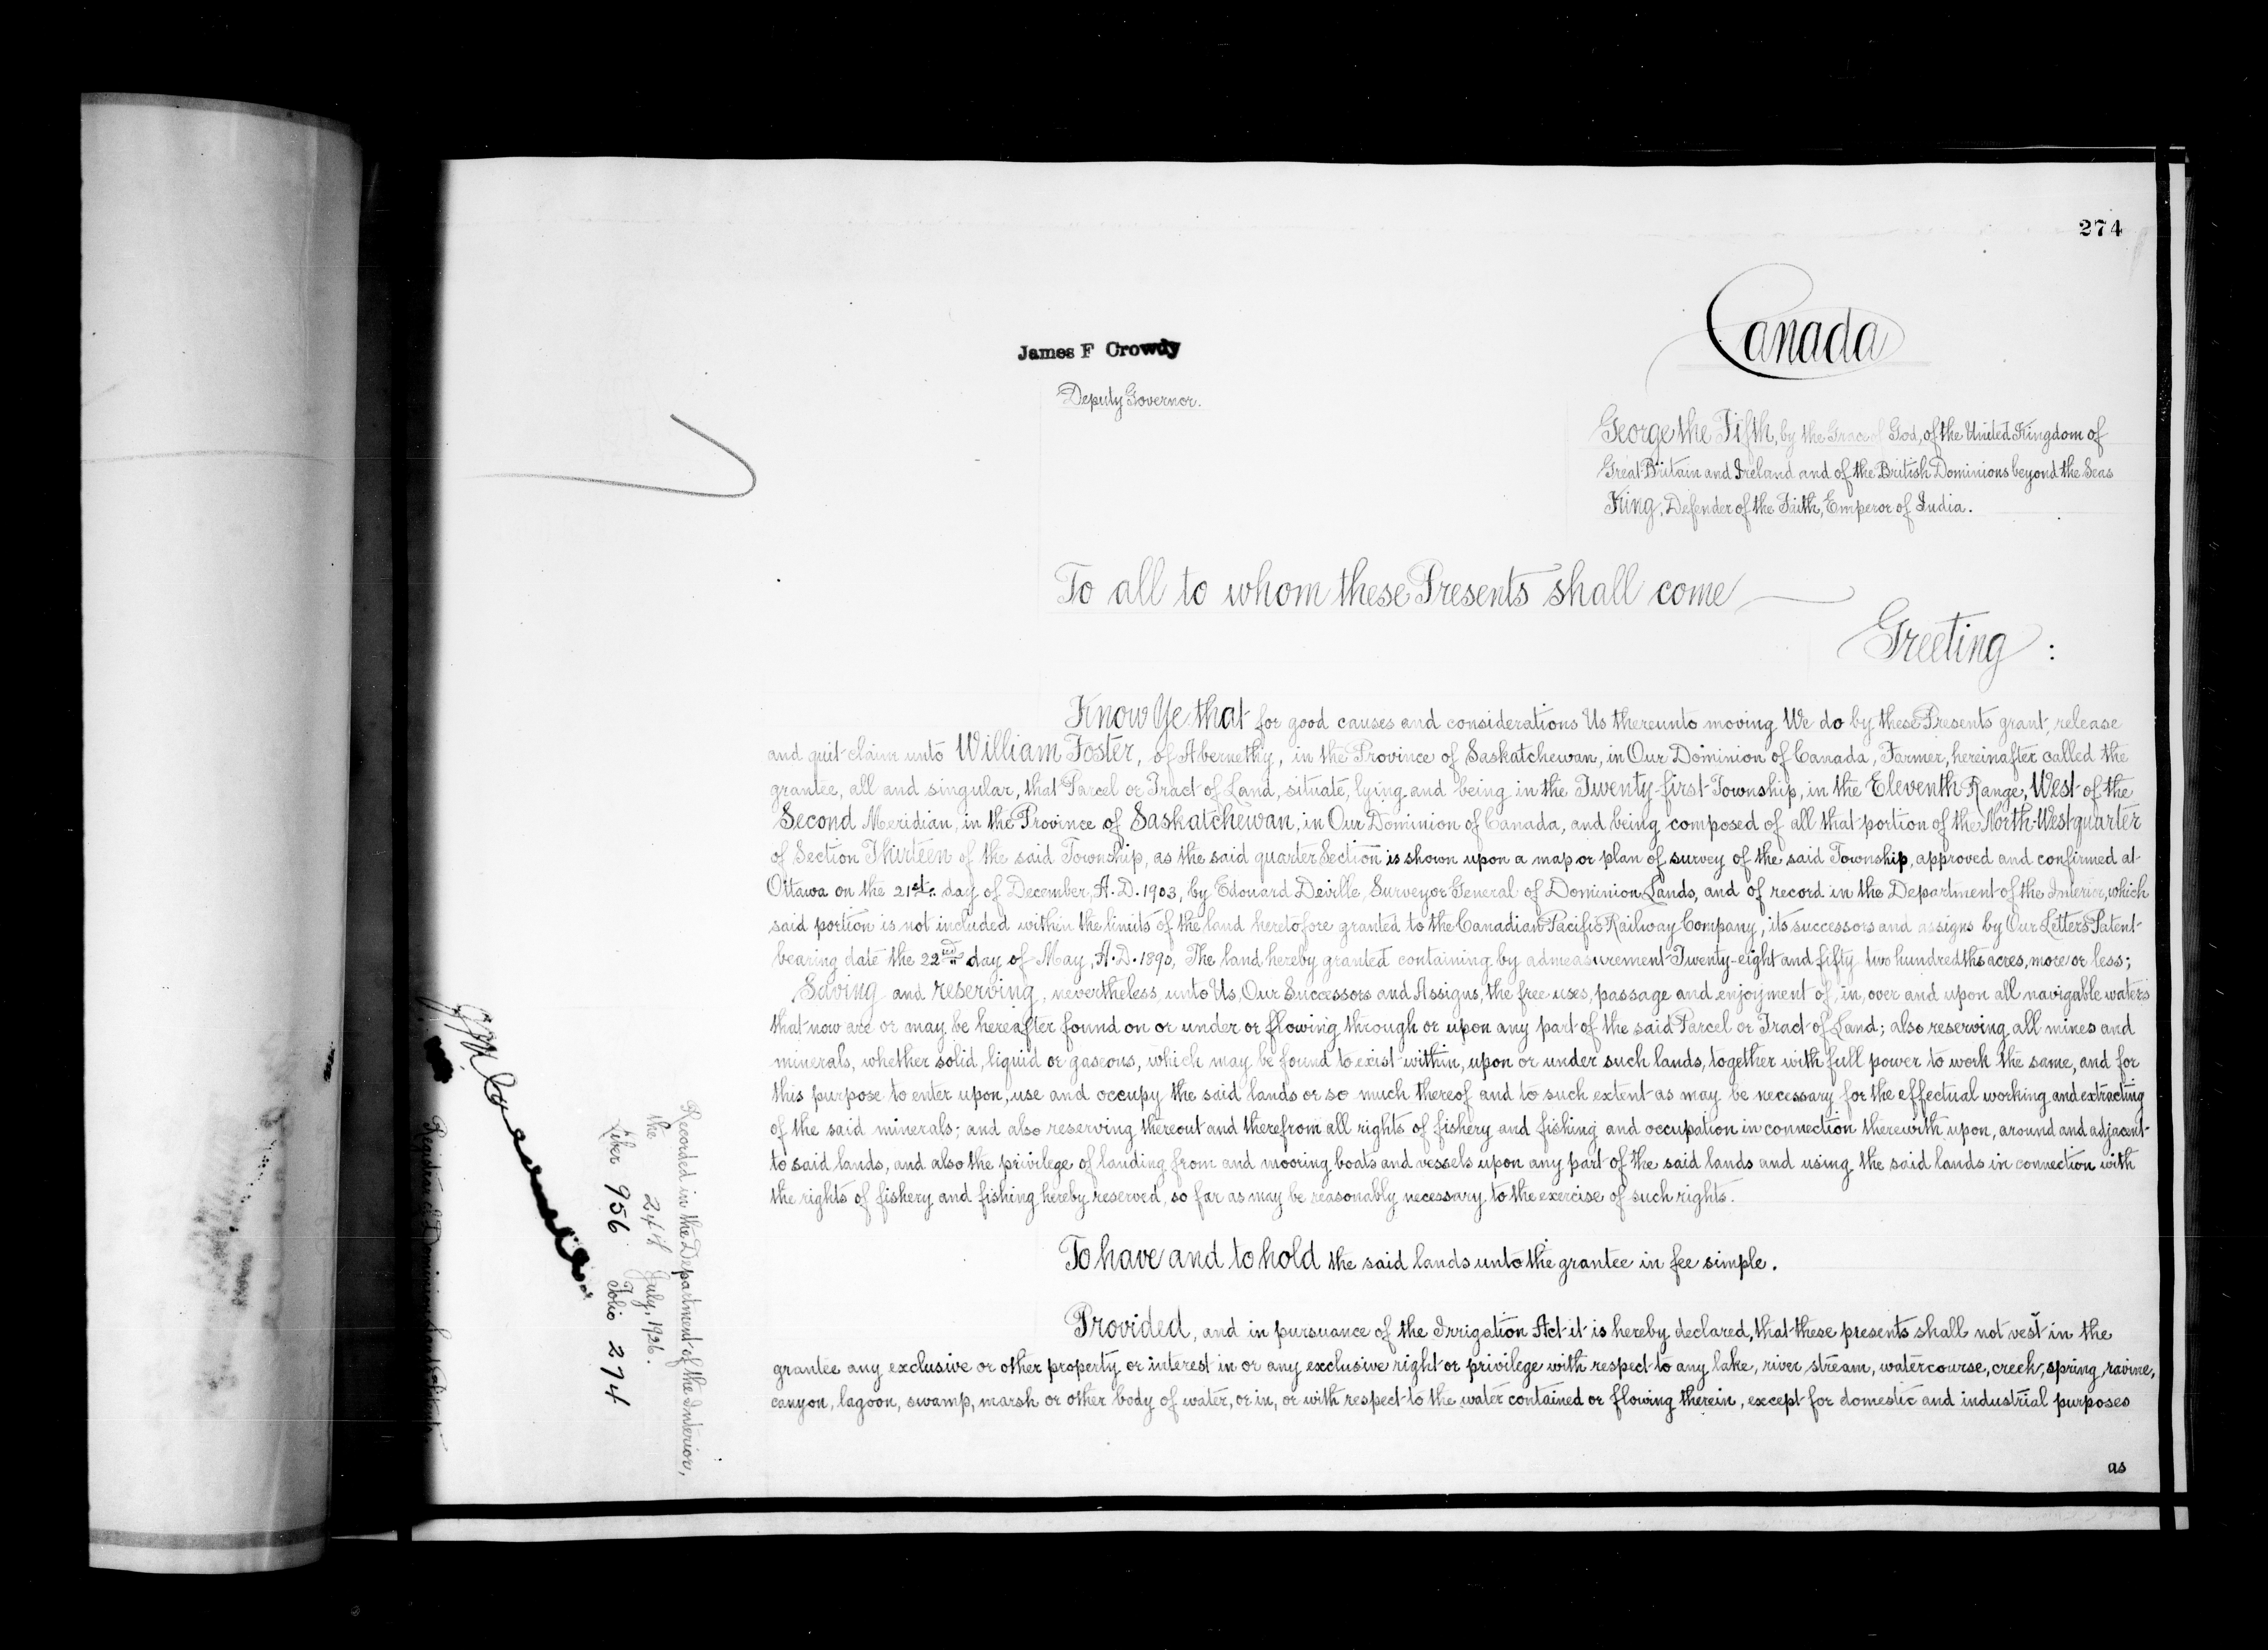 274
Canada
James F Crowdy
Deputy Governor.
George the Fifth, by the Grace of God, of the United Kingdom of
Great Britain and Ireland and of the British Dominions beyond the Seas
King, Defender of the Faith, Emperor of India.
To all to whom these Presents shall come
Greeting :
Know Ye that for good causes and considerations Us thereunto moving We do by these Presents grant, release
and quit-claim unto William Foster, of Abernethy, in the Province of Saskatchewan, in Our Dominion of Canada, Farmer, hereinafter called the
grantee, all and singular, that Parcel or Tract of Land, situate, lying and being in the Twenty-first Township, in the Eleventh Range, West of the
Second Meridian, in the Province of Saskatchewan, in Our Dominion of Canada, and being composed of all that portion of the North-West quarter
of Section Thirteen of the said Township, as the said quarter Section is shown upon a map or plan of survey of the said Township, approved and confirmed at
Ottawa on the 21st. day of December, A.D. 1903, by Edouard Deville, Surveyor General of Dominion Lands, and of record in the Department of the Interior, which
said portion is not included within the limits of the land heretofore granted to the Canadian Pacific Railway Company, its successors and assigns by Our Letters Patent
bearing date the 22nd day of May, A.D. 1890, The land hereby granted containing by admeasurement Twenty-eight and fifty-two hundredths acres, more or less;
Saving and reserving, nevertheless, unto Us, Our Successors and Assigns, the free uses, passage and enjoyment of, in, over and upon all navigable waters
that now are or may be hereafter found on or under or flowing through or upon any part of the said Parcel or Tract of Land; also reserving all mines and
minerals, whether solid, liquid or gaseous, which may be found to exist within, upon or under such lands, together with full power to work the same, and for
this purpose to enter upon, use and occupy the said lands or so much thereof and to such extent as may be necessary for the effectual working and extracting
of the said minerals; and also reserving thereout and therefrom all rights of fishery and fishing and occupation in connection therewith upon, around and adjacent
to said lands, and also the privilege of landing from and mooring boats and vessels upon any part of the said lands and using the said lands in connection with
the rights of fishery and fishing hereby reserved, so far as may be reasonably necessary to the exercise of such rights.
To have and to hold the said lands unto the grantee in fee simple.
Provided, and in pursuance of the Irrigation Act it is hereby declared, that these presents shall not vest in the
grantee any exclusive or other property or interest in or any exclusive right or privilege with respect to any lake, river stream, watercourse, creek, spring, ravine,
canyon, lagoon, swamp, marsh or other body of water, or in, or with respect to the water contained or flowing therein, except for domestic and industrial purposes
as
Recorded in the Department of the Interior,
the 24th July, 1926.
Liber 956 Folio 274
Registrar of Dominion Lands Patents